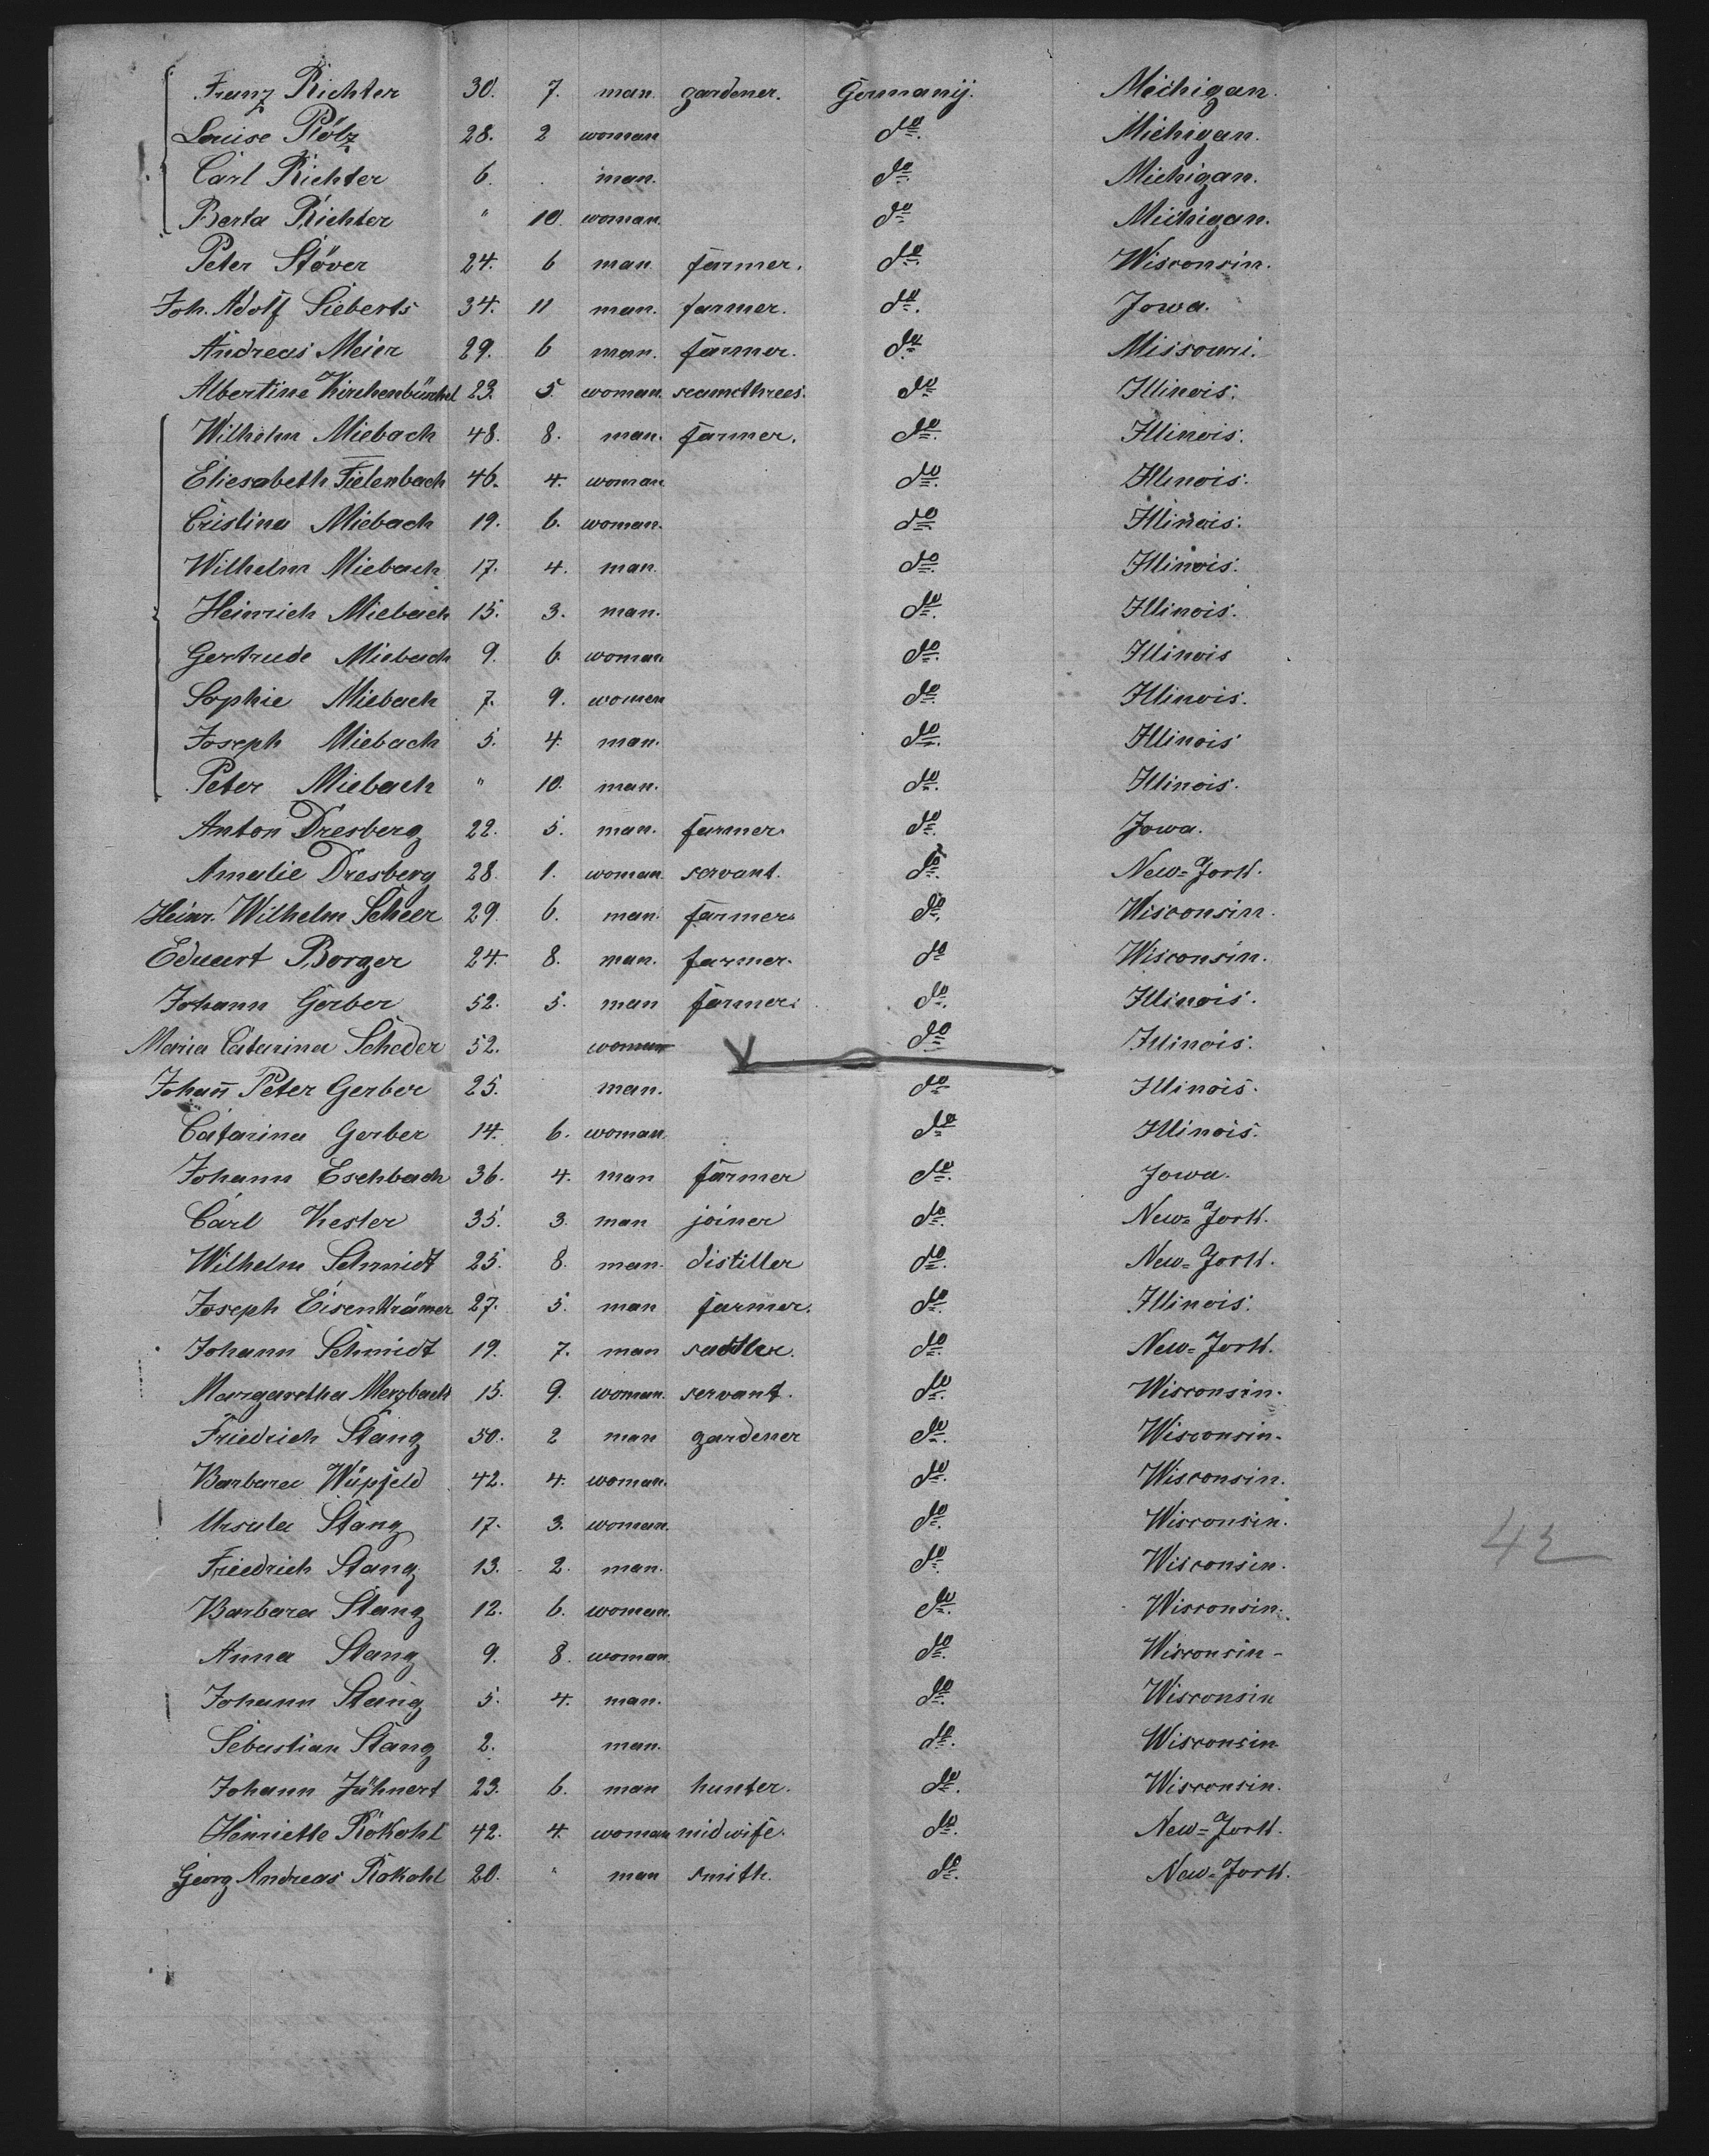 Franz Richter 30. 7. man. gardener. Germanij. Michigan.
Louise Plötz 28. 2 woman do. Michigan.
Carl Richter 6. . man. do. Michigan.
Berta Richter " 10. woman. do Michigan.
Peter Stöver 24. 6 man farmer. do. Wisconsin.
Joh. Adolf Sieberts 34. 11 man. farmer. do. Jowa.
Andreas Meier 29. 6 man. farmer. do. Missouri.
Albertine Kirchenbüchel 23. 5. woman. seamethrees. do Illinois.
Wilhelm Miebach 48. 8. man. farmer. do. Illinois.
Eliesabeth Fielenbach 46. 4. woman do. Illinois.
Cristina Miebach 19. 6. woman. do. Illinois.
Wilhelm Miebach 17. 4. man. do. Illinois.
Heinrich Miebach 15. 3. man. do. Illinois.
Gertrude Miebach 9. 6. woman do. Illinois
Sophie Miebach 7. 9. women do. Illinois.
Joseph Miebach 5. 4. man. do. Illinois
Peter Miebach " 10. man. do. Illinois.
Anton Dresberg 22. 5. man. farmer. do. Jowa.
Amalie Dresberg 28. 1. woman. servant. do. New=Jork.
Heinr. Wilhelm Scheer 29. 6. man. farmer. do. Wisconsin.
Eduart Borger 24. 8. man. farmer. do Wisconsin.
Johann Gerber 52. 5. man farmer. do. Illinois.
Maria Catarina Scheder 52. woman do Illinois.
Johann̄ Peter Gerber 25. man. do Illinois.
Catarina Gerber 14. 6. woman. do Illinois.
Johann Eschbach 36. 4. man farmer do. Jowa.
Carl Kester 35. 3. man joiner do. New=Jork.
Wilhelm Schmidt 25. 8. man. distiller do. New=Jork.
Joseph Eisenkrämer 27. 5. man farmer. do. Illinois.
Johann Schmidt 19. 7. man saddler. do. New=Jork.
Margaretha Merzbach 15. 9. woman. servant. do. Wisconsin.
Friedrich Stang 50. 2 man gardener do. Wisconsin.
Barbara Wüpfeld 42. 4. woman. do. Wisconsin.
Ursula Stang 17. 3. woman. do. Wisconsin.
42
Friedrich Stang 13. 2. man. do. Wisconsin.
Barbara Stang 12. 6. woman. do. Wisconsin.
Anna Stang 9. 8. woman. do. Wisconsin-
Johann Stang 5. 4. man. do. Wisconsin
Sebastian Stang 2. man. do. Wisconsin
Johann Jähnert 23. 6. man hunter. do. Wisconsin.
Henriette Rokohl 42. 4. woman midwife. do. New=Jork.
Georg Andreas Rokohl 20. " man smith. do. New=Jork.